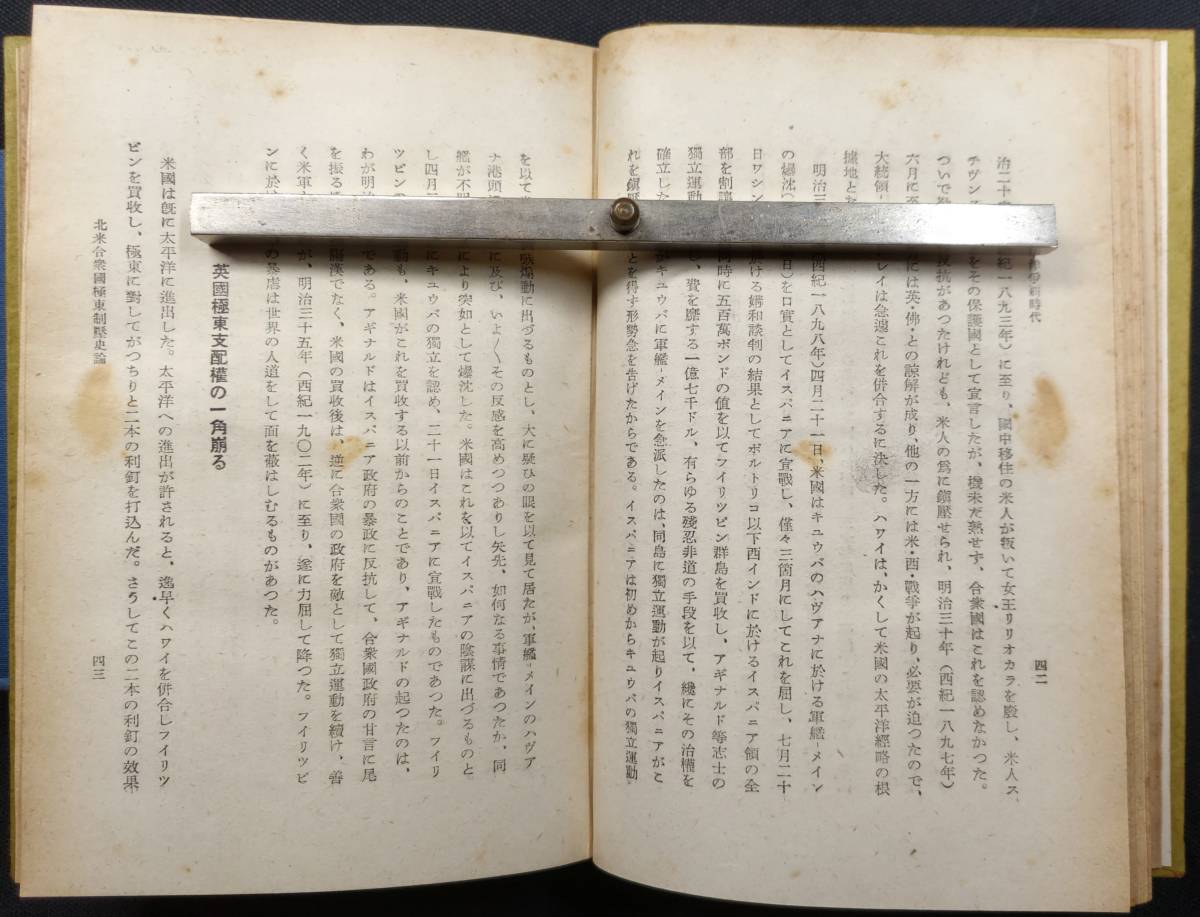 時代
四二
治二十
八九三年）に至り、國中移住の米人が叛いて女王リリオカラを廢し、米人ス
チヴン
をその保護國として宣言したが、機未だ熟せず、合衆國はこれを認めなかつた。
ついで
反抗があつたけれども、米人の爲に鎭壓せられ、明治三十年（西紀一八九七年）
六月に至
には英・佛・との諒解が成り、他の一方には米・西・戰爭が起り、必要が迫つたので、
大統領
レイは急遽これを併合するに決した。ハワイは、かくして米國の太平洋經略の根
據地と
明治三
四紀一八九八年）四月二十一日、米國はキユウバのハヴアナに於ける軍艦-メイン
の爆沈
日）を口實としてイスパニアに宣戰し、僅々三箇月にしてこれを屈し、七月二十
日ワシン
於ける媾和談判の結果としてポルトリコ以下西インドに於けるイスパニア領の全
部を割讓
同時に五百萬ポンドの値を以てフイリツピン群島を買收し、アギナルド等志士の
獨立運動
し、費を靡する一億七千ドル、有らゆる殘忍非道の手段を以て、纔にその治權を
確立した
がキユウバに軍艦-メインを急派したのは、同島に獨立運動が起りイスパニアがこ
れを鎭壓
とを得ず形勢急を告げたからである。イスパニアは初めからキユウバの獨立運動
を以て
煽動に出づるものとし、大に疑ひの眼を以て見て居たが、軍艦-メインのハヴア
ナ港頭
に及び、いよ〱その反感を高めつつありし矢先、如何なる事情であつたか、同
艦が不明
により突如として爆沈した。米國はこれを以てイスパニアの陰謀に出づるものと
し四月
にキユウバの獨立を認め、二十一日イスパニアに宣戰したものであつた。フイリ
ツピンの
動も、米國がこれを買收する以前からのことであり、アギナルドの起つたのは、
わが明治
である。アギナルドはイスパニア政府の暴政に反抗して、合衆國政府の甘言に尾
を振る
漢でなく、米國の買收後は、逆に合衆國の政府を敵として獨立運動を續け、善
く米軍
が、明治三十五年（西紀一九〇二年）に至り、遂に力屈して降つた。フイリツピ
ンに於
の暴虐は世界の人道をして面を蔽はしむるものがあつた。
英國極東支配權の一角崩る
米國は既に太平洋に進出した。太平洋への進出が許されると、逸早くハワイを併合しフイリツ
ピンを買收し、極東に對してがつちりと二本の利釘を打込んだ。さうしてこの二本の利釘の效果
北米合衆國極東制壓史論
四三